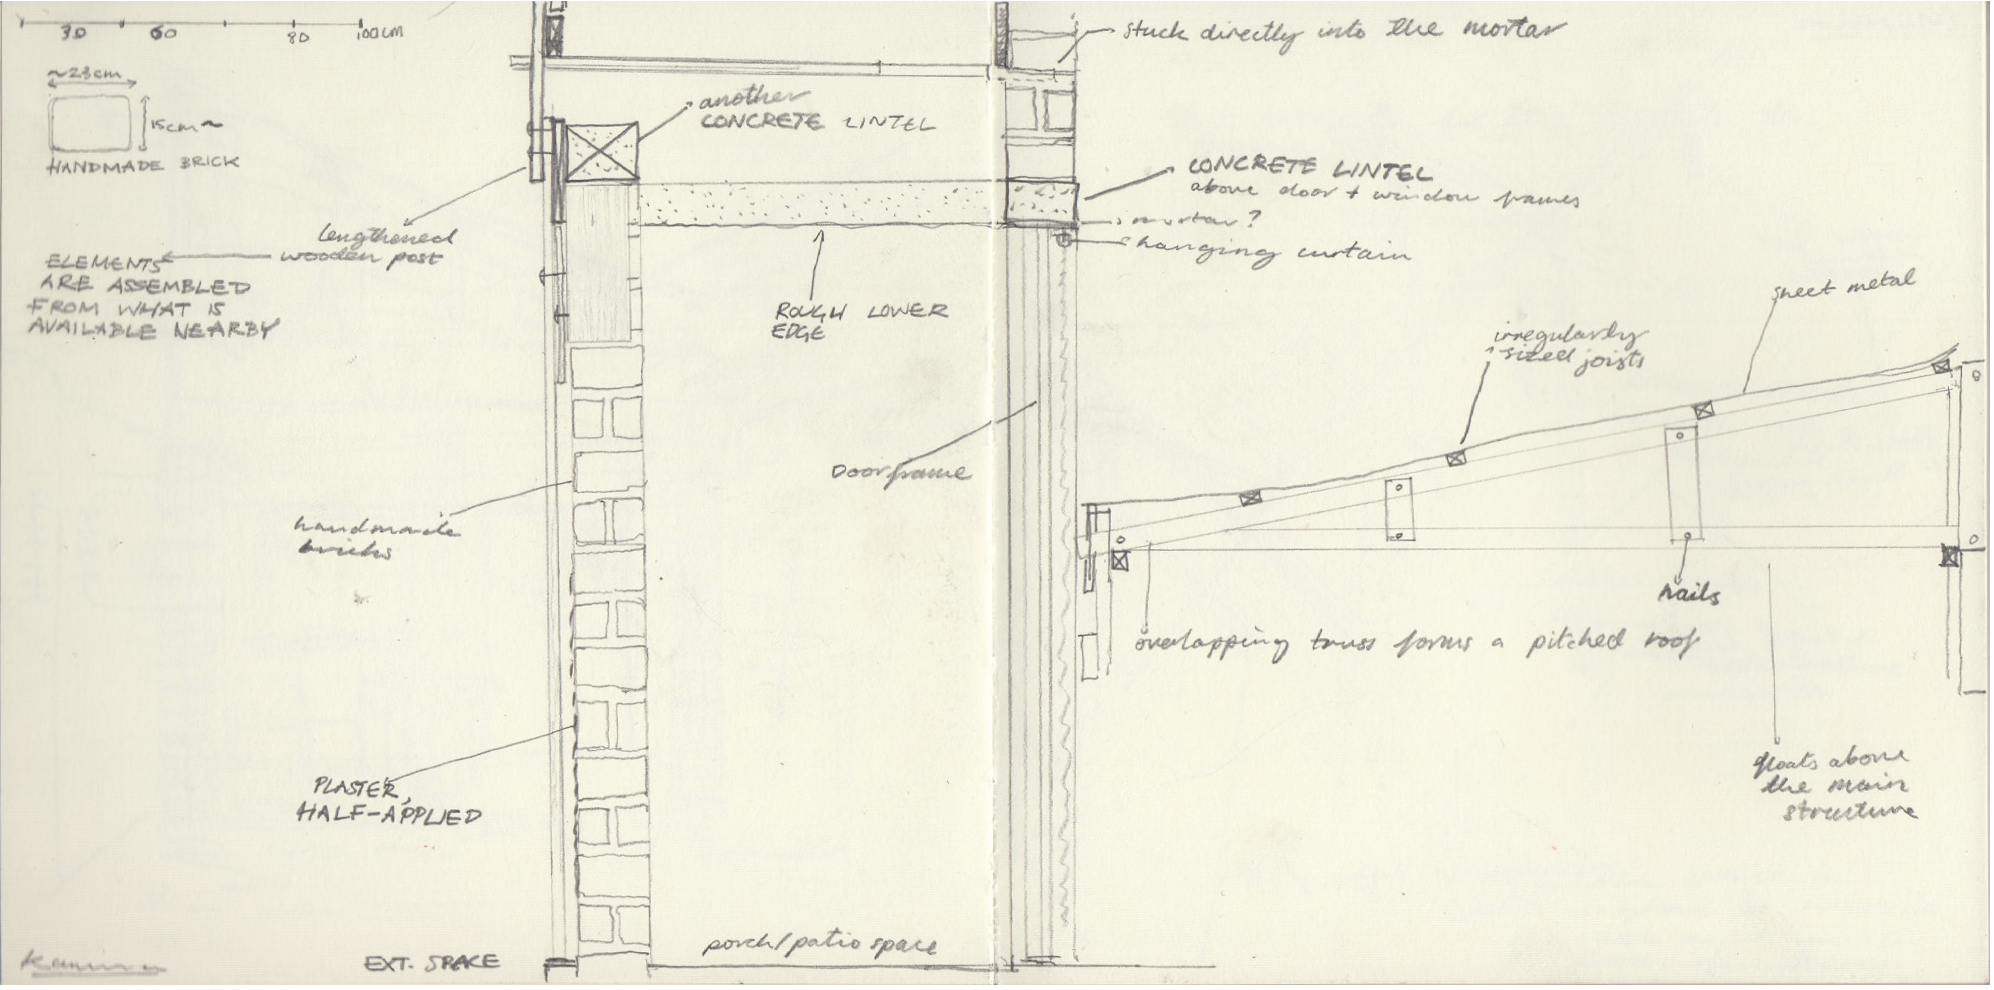 30 60 80 100cm
~23cm
15cm~
HANDMADE BRICK
lengthened
wooden post
ELEMENTS
ARE ASSEMBLED
FROM WHAT IS
AVAILABLE NEARBY
another
CONCRETE LINTEL
ROUGH LOWER
EDGE
Doorframe
handmade
bricks
PLASTER,
HALF-APPLIED
EXT. SPACE
porch/patio space
stuck directly into the mortar
CONCRETE LINTEL
above door + window frames
mortar?
hanging curtain
sheet metal
irregularly
sized joists
nails
overlapping truss forms a pitched roof
floats above
the main
structure